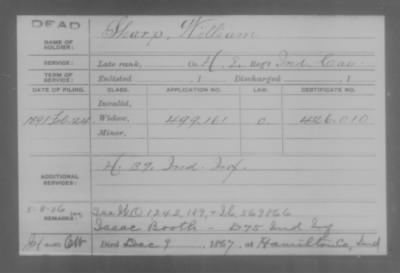 DEAD
NAME OF SOLDIER: Sharp, William
SERVICE: Late rank, Co. H, 2, Reg't Ind. Cav.
TERM OF SERVICE: Enlisted , 1 Discharged , 1
DATE OF FILING. CLASS. APPLICATION NO. LAW. CERTIFICATE NO.
Invalid,
1891 Feb. 24 Widow, 499.161 O. 446.010
Minor,
ADDITIONAL SERVICES: H. 39. Ind. Inf.
REMARKS: 1242,189,
Isaac Booth - D 75 Ind Inf
Died Dec 9, 1887, at Hamilton Co, Ind